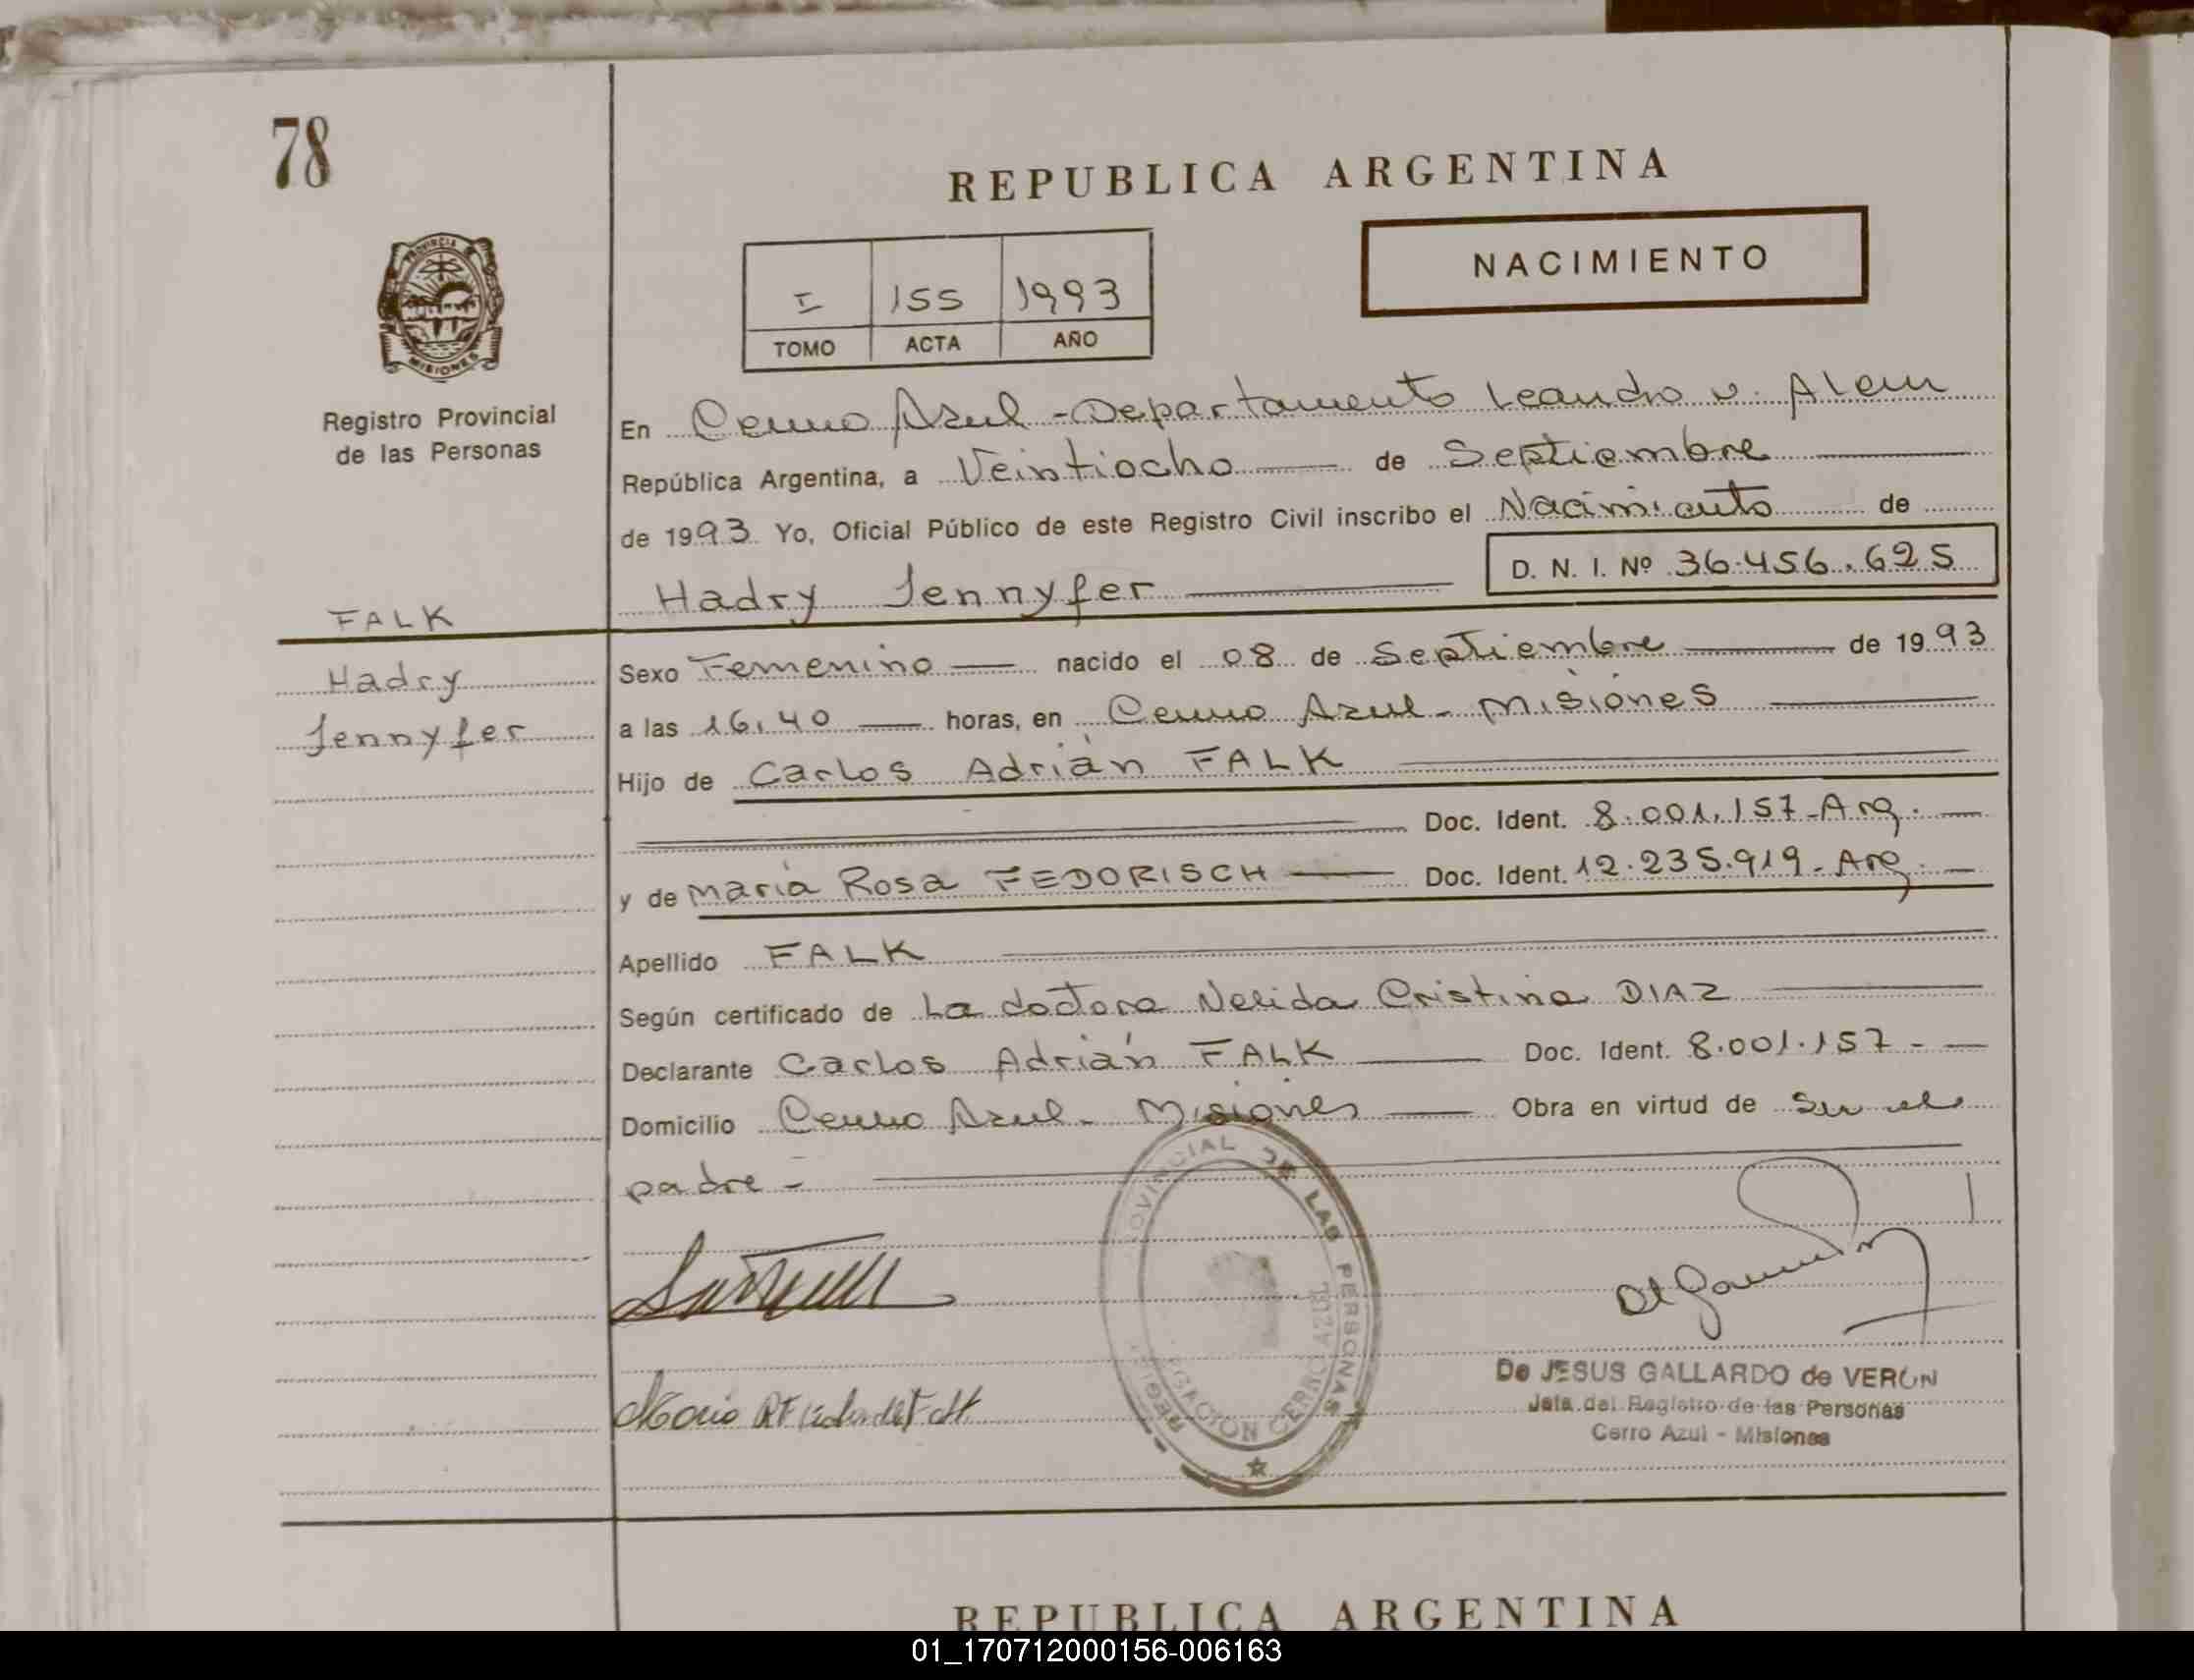 78
REPUBLICA ARGENTINA
NACIMIENTO
I 155 1993
TOMO ACTA AÑO
PROVINCIA DE
MISIONES
Registro Provincial
de las Personas
En Cerro Azul - Departamento Leandro N. Alem
República Argentina, a Veintiocho de Septiembre
de 1993 Yo, Oficial Público de este Registro Civil inscribo el Nacimiento de
D. N. I. Nº 36.456.625
Hadry Jennyfer
FALK
Hadry
Jennyfer
Sexo Femenino nacido el 08 de Septiembre de 1993
a las 16,40 horas, en Cerro Azul - Misiones
Hijo de Carlos Adrián FALK
Doc. Ident. 8.001.157 - Arg.
y de María Rosa FEDORISCH Doc. Ident. 12.235.919 - Arg.
Apellido FALK
Según certificado de La doctora Nelida Cristina DIAZ
Declarante Carlos Adrián FALK Doc. Ident. 8.001.157 -
Domicilio Cerro Azul - Misiones Obra en virtud de Ser el
padre -
PROVINCIAL DE LAS PERSONAS
CERRO AZUL
De JESUS GALLARDO de VERON
Jefa del Registro de las Personas
Cerro Azul - Misiones
REPUBLICA ARGENTINA
01_170712000156-006163